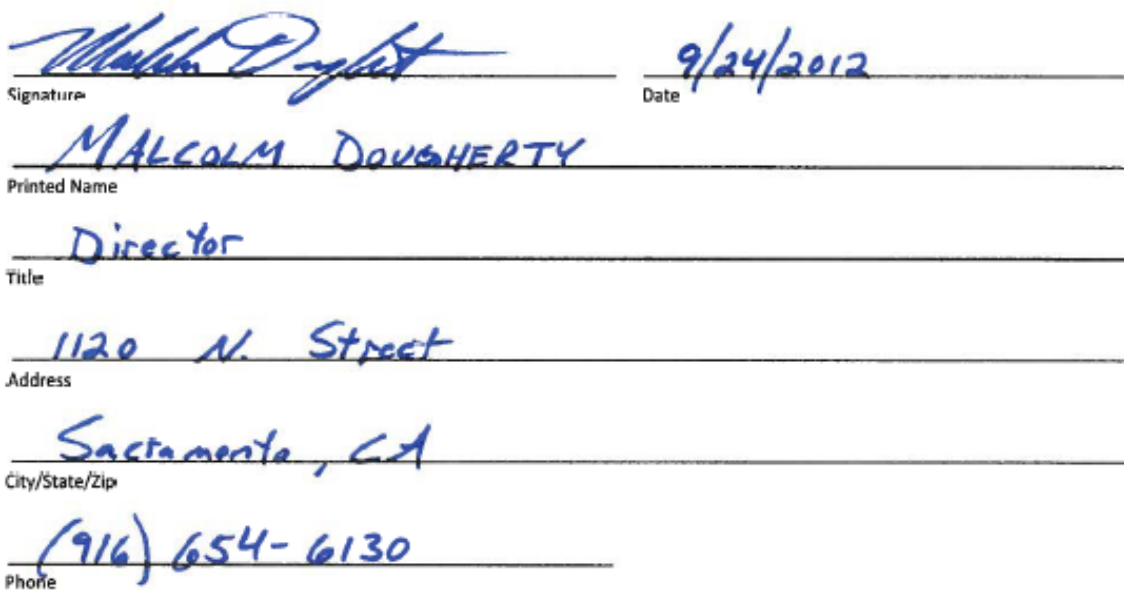 Malcolm Dougherty 9/24/2012
Signature Date
MALCOLM DOUGHERTY
Printed Name
Director
Title
1120 N. Street
Address
Sacramento, CA
City/State/Zip
(916) 654-6130
Phone